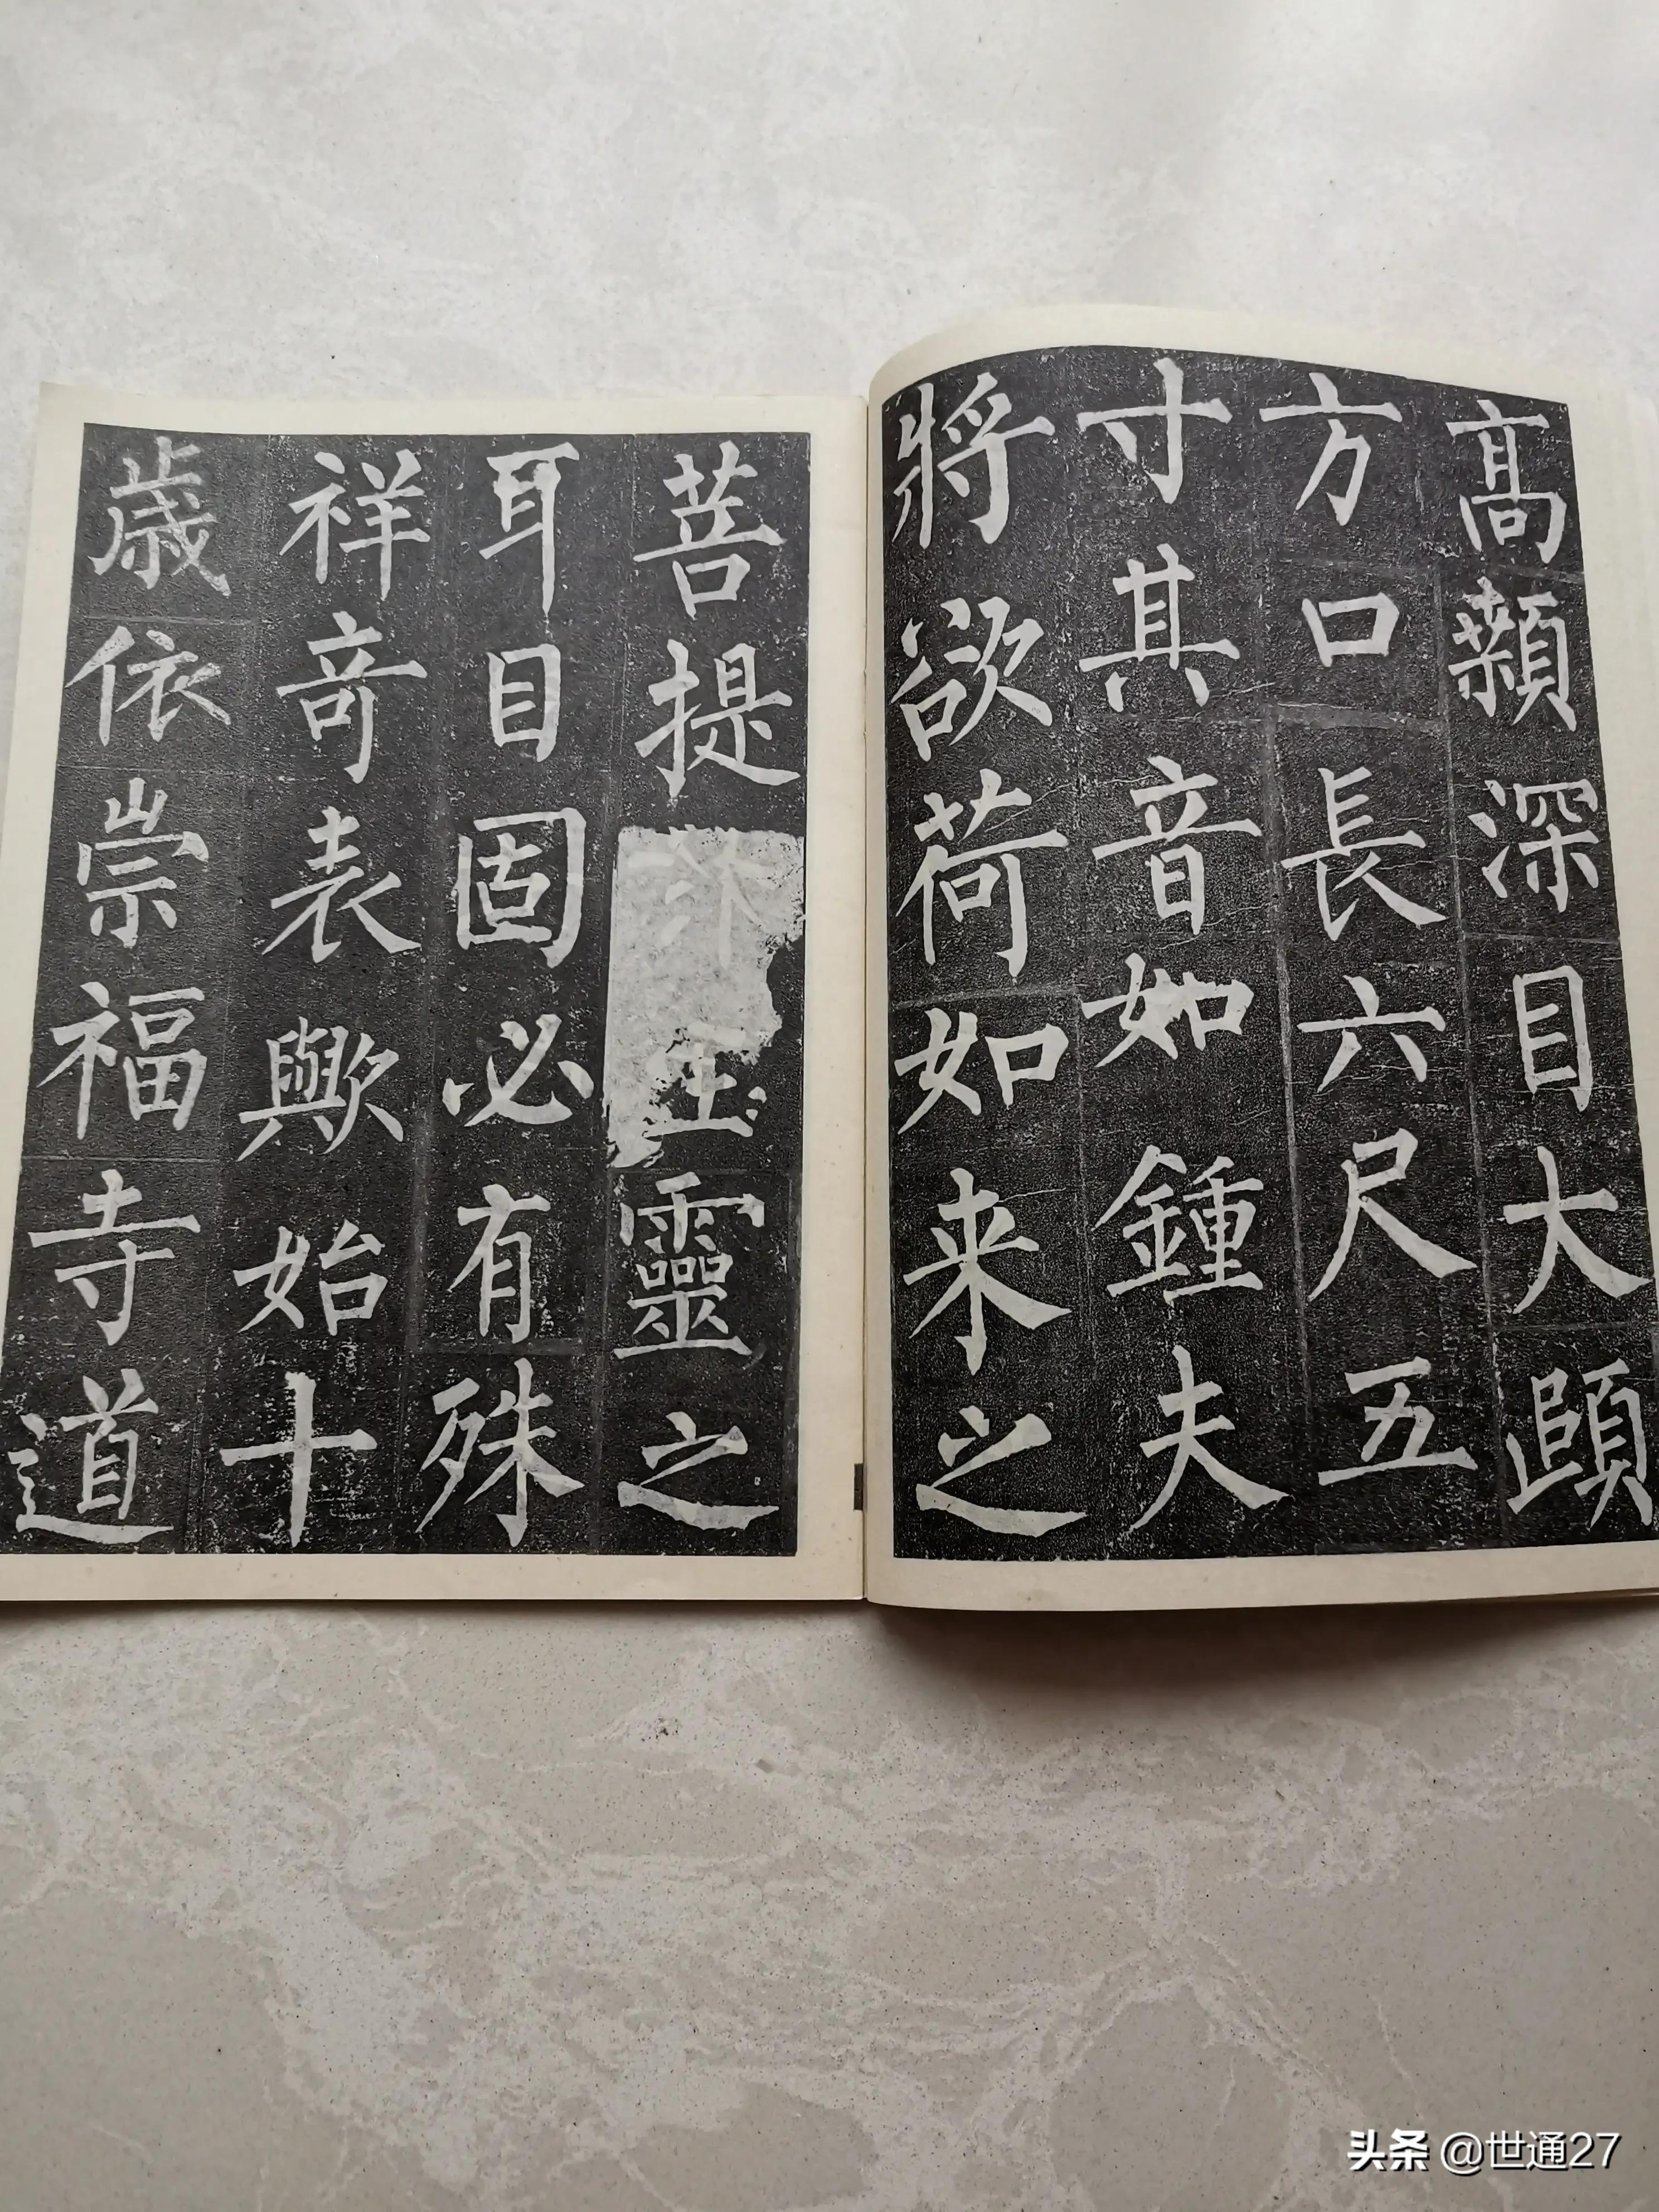 高顙深目大頤
方口長六尺五
寸其音如鍾夫
將欲荷如来之
菩提
生靈之
耳目固必有殊
祥竒表歟始十
歳依崇福寺道
头条 @世通27